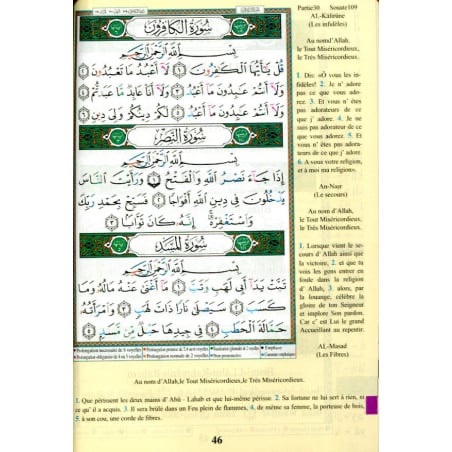 سُورَةُ الكَافِرُونَ
بِسْمِ اللَّهِ الرَّحْمَٰنِ الرَّحِيمِ
قُلْ يَٰٓأَيُّهَا ٱلْكَٰفِرُونَ ١ لَآ أَعْبُدُ مَا تَعْبُدُونَ
٢ وَلَآ أَنتُمْ عَٰبِدُونَ مَآ أَعْبُدُ ٣ وَلَآ أَنَا۠ عَابِدٌ مَّا عَبَدتُّمْ
٤ وَلَآ أَنتُمْ عَٰبِدُونَ مَآ أَعْبُدُ ٥ لَكُمْ دِينُكُمْ وَلِيَ دِينِ ٦
سُورَةُ النَّصْرِ
بِسْمِ اللَّهِ الرَّحْمَٰنِ الرَّحِيمِ
إِذَا جَآءَ نَصْرُ ٱللَّهِ وَٱلْفَتْحُ ١ وَرَأَيْتَ ٱلنَّاسَ
يَدْخُلُونَ فِي دِينِ ٱللَّهِ أَفْوَاجًا ٢ فَسَبِّحْ بِحَمْدِ رَبِّكَ
وَٱسْتَغْفِرْهُ إِنَّهُۥ كَانَ تَوَّابًۢا ٣
سُورَةُ المَسَدِ
بِسْمِ اللَّهِ الرَّحْمَٰنِ الرَّحِيمِ
تَبَّتْ يَدَآ أَبِي لَهَبٍ وَتَبَّ ١ مَآ أَغْنَىٰ عَنْهُ مَالُهُۥ وَمَا
كَسَبَ ٢ سَيَصْلَىٰ نَارًا ذَاتَ لَهَبٍ ٣ وَٱمْرَأَتُهُۥ
حَمَّالَةَ ٱلْحَطَبِ ٤ فِي جِيدِهَا حَبْلٌ مِّن مَّسَدٍ ٥
Partie30 Sourate109
AL-Kâfirûne
(Les infidèles)
Au nomd'Allah,
le Tout Miséricordieux,
le Très Miséricordieux.
1. Dis: «Ô vous les in-
fidèles! 2. Je n' adore
pas ce que vous ado-
rez. 3. Et vous n' êtes
pas adorateurs de ce
que j' adore. 4. Je ne
suis pas adorateur de ce
que vous adorez. 5. Et
vous n' êtes pas adora-
teurs de ce que j' adore.
6. A vous votre religion,
et à moi ma religion».
An-Nasr
(Le secours)
Au nom d'Allah,
le Tout Miséricordieux,
le Très Miséricordieux.
1. Lorsque vient le se-
cours d' Allah ainsi que
la victoire, 2. et que tu
vois les gens entrer en
foule dans la religion
d' Allah, 3. alors, par
la louange, célèbre la
gloire de ton Seigneur
et implore Son pardon.
Car c' est Lui le grand
Accueillant au repentir.
AL-Masad
(Les Fibres)
Au nom d'Allah,le Tout Miséricordieux,le Très Miséricordieux.
1. Que périssent les deux mains d'Abû - Lahab et que lui-même périsse. 2. Sa fortune ne lui sert à rien, ni
ce qu' il a acquis. 3. Il sera brûlé dans un Feu plein de flammes, 4. de même sa femme, la porteuse de bois,
5. à son cou, une corde de fibres.
46